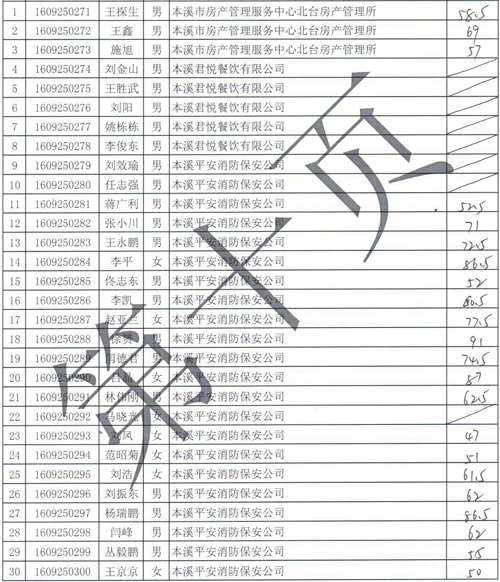 1 1609250271 王探生 男 本溪市房产管理服务中心北台房产管理所 58.5
2 1609250272 王鑫 男 本溪市房产管理服务中心北台房产管理所 69
3 1609250273 施旭 男 本溪市房产管理服务中心北台房产管理所 57
4 1609250274 刘金山 男 本溪君悦餐饮有限公司
5 1609250275 王胜武 男 本溪君悦餐饮有限公司
6 1609250276 刘阳 男 本溪君悦餐饮有限公司
7 1609250277 姚栋栋 男 本溪君悦餐饮有限公司
8 1609250278 李俊东 男 本溪君悦餐饮有限公司
9 1609250279 刘效瑜 男 本溪平安消防保安公司
10 1609250280 任志强 男 本溪平安消防保安公司
11 1609250281 蒋广利 男 本溪平安消防保安公司 52.5
12 1609250282 张小川 男 本溪平安消防保安公司 71
13 1609250283 王永鹏 男 本溪平安消防保安公司 72.5
14 1609250284 李平 女 本溪平安消防保安公司 86.5
15 1609250285 佟志东 男 本溪平安消防保安公司 52
16 1609250286 李凯 男 本溪平安消防保安公司 80.5
17 1609250287 赵亚兰 女 本溪平安消防保安公司 77.5
18 1609250288 徐贤 男 本溪平安消防保安公司 91
19 1609250289 闫德君 男 本溪平安消防保安公司 74.5
20 1609250290 吕晶 女 本溪平安消防保安公司 87
21 1609250291 林伟刚 男 本溪平安消防保安公司 62.5
22 1609250292 马晓光 女 本溪平安消防保安公司
23 1609250293 刘凤 女 本溪平安消防保安公司 47
24 1609250294 范昭菊 女 本溪平安消防保安公司 51
25 1609250295 刘浩 女 本溪平安消防保安公司 61.5
26 1609250296 刘振东 男 本溪平安消防保安公司 62
27 1609250297 杨瑞鹏 男 本溪平安消防保安公司 86.5
28 1609250298 闫峰 男 本溪平安消防保安公司 62
29 1609250299 丛毅鹏 男 本溪平安消防保安公司 55
30 1609250300 王京京 女 本溪平安消防保安公司 50
第十页